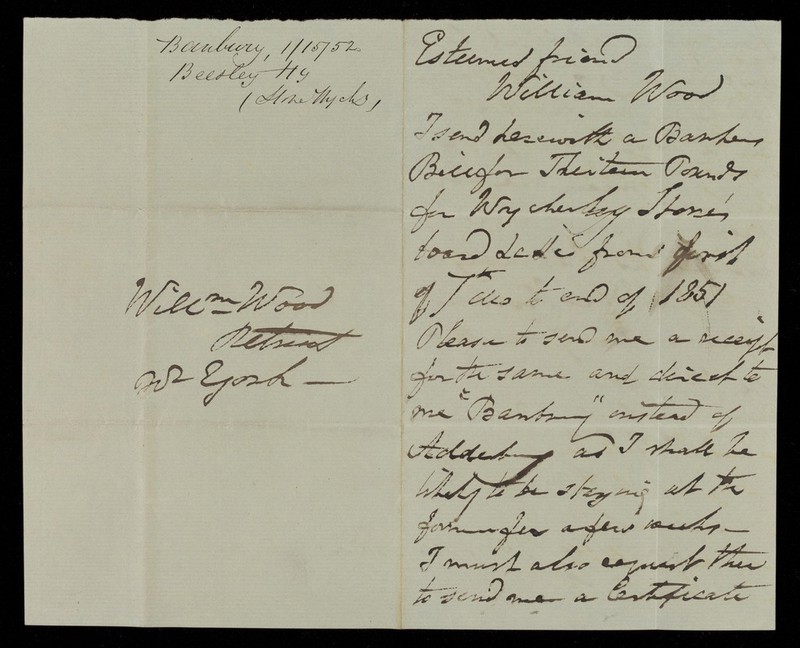 Banbury, 1/15/52
Beesley Hy
(Stone Wych)
Willm Wood
Retreat
Nr York
Esteemed friend
William Wood
I send herewith a Bankers
Bill for Thirteen Pounds
for Wycherley Stone's
board &c from first
of to end of 1851
Please to send me a receipt
for the same and direct to
me "Banbury" instead of
Adderbury as I shall be
likely to be staying at the
former for a few weeks —
I must also request thee
to send me a Certificate